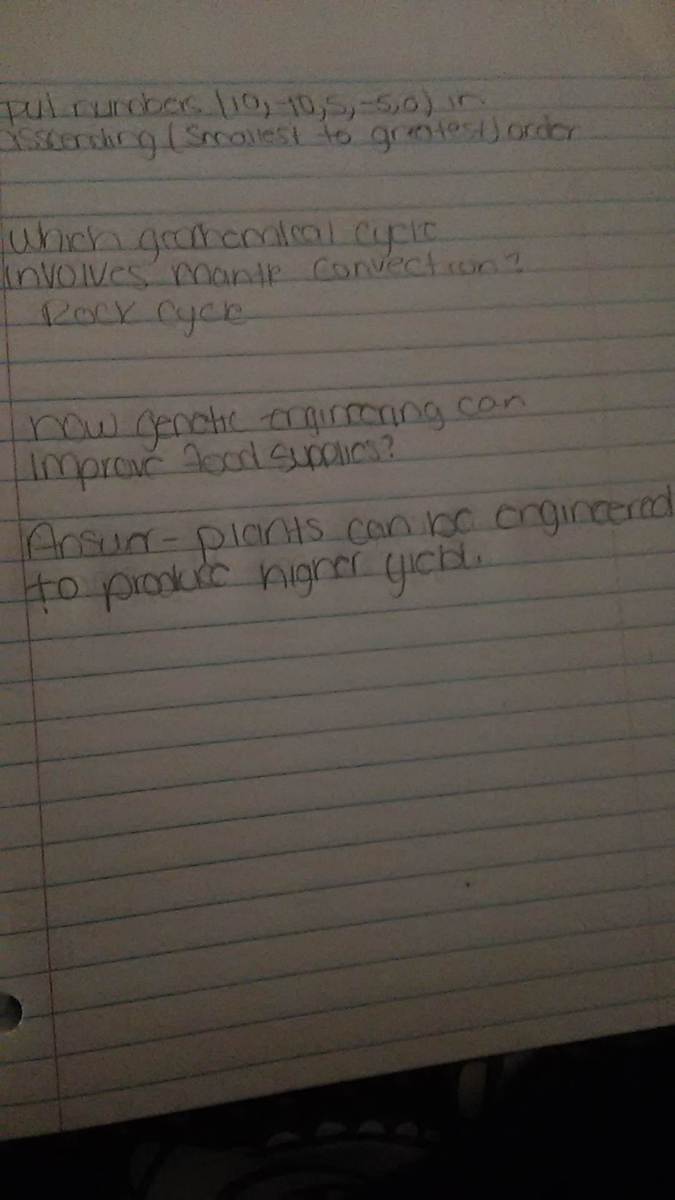 put numbers (10,-10,5,-5,0) in
asscending (smallest to greatest) order
which geochemical cycle
involves mantle convection?
Rock cycle
how genetic engineering can
improve food supplies?
Answer - plants can be engineered
to produce higher yield.